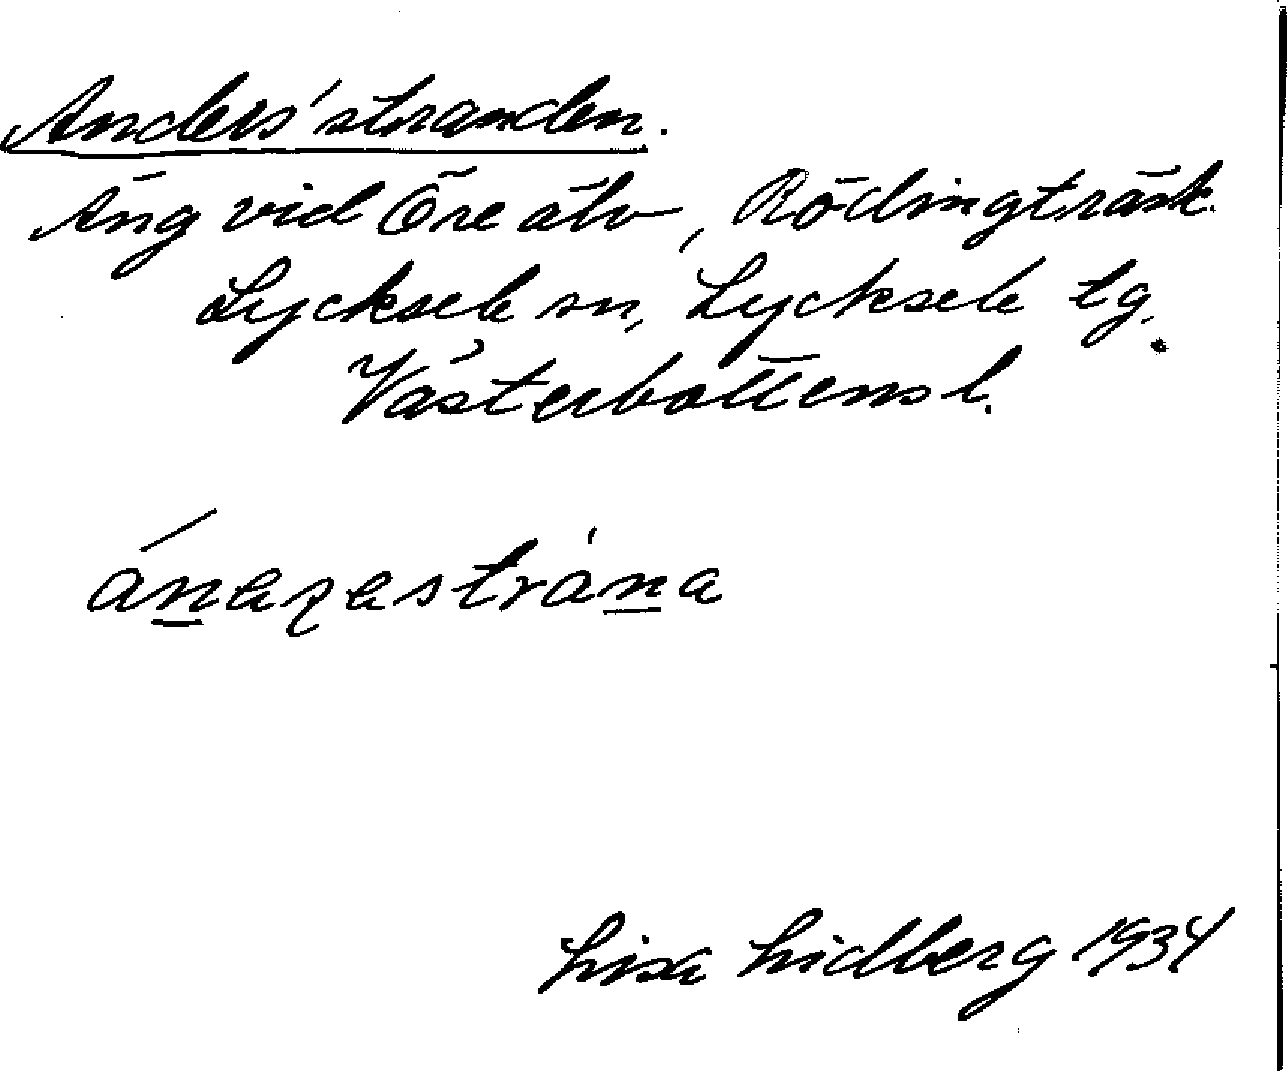 Anders'stranden.
Äng vid Öre älv, Rödingträsk.
Lycksele sn, Lycksele tg.
Västerbottens l.
Lisa Lidberg 1934